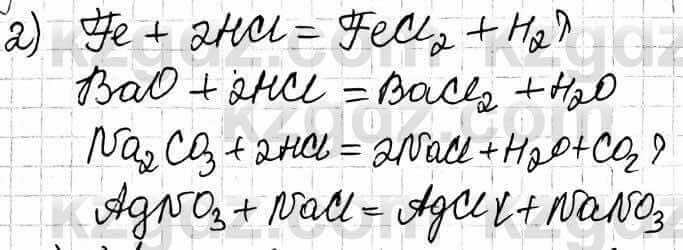 2) Fe + 2HCl = FeCl₂ + H₂↑
BaO + 2HCl = BaCl₂ + H₂O
Na₂CO₃ + 2HCl = 2NaCl + H₂O + CO₂↑
AgNO₃ + NaCl = AgCl↓ + NaNO₃